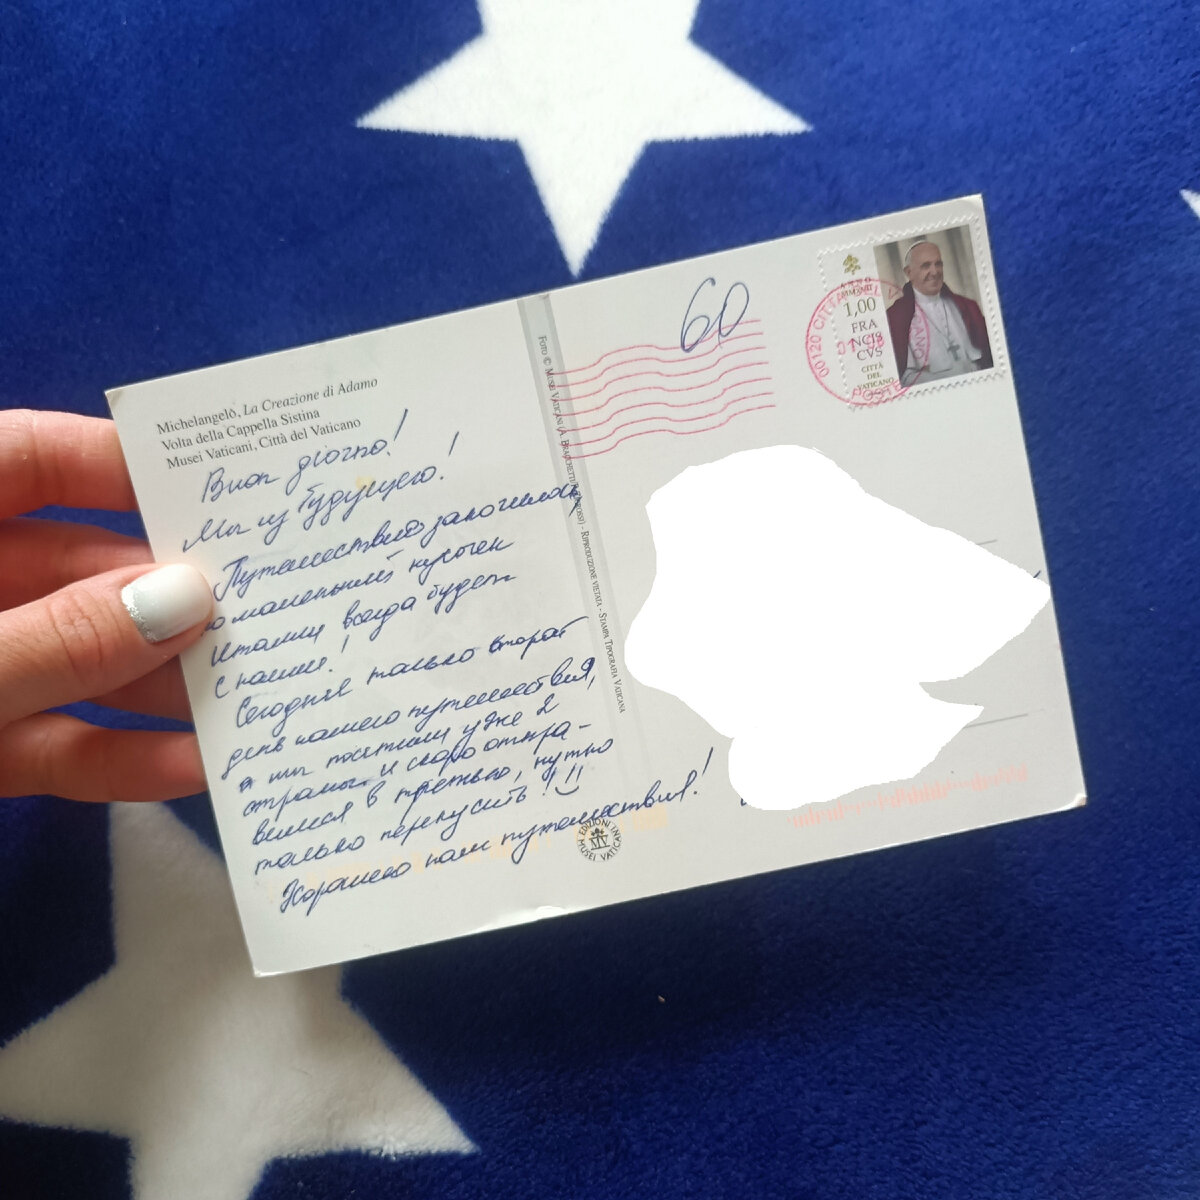 Michelangelo, La Creazione di Adamo
Volta della Cappella Sistina
Musei Vaticani, Città del Vaticano
Buon giorno!
Мы из будущего!
Путешествие запомним
маленький кусочек
Италии всегда будет
с нами!
Сегодня только второй
день нашего путешествия,
а мы посетили уже 2
страны и скоро отпра-
вимся в третью, нужно
только перекусить!!!
Хорошего нам путешествия!
FOTO © MUSEI VATICANI (A. BRACCHETTI - ROSSI) - RIPRODUZIONE VIETATA - STAMPA TIPOGRAFIA VATICANA
EDIZIONI
MUSEI VATICANI
MV
60
ANNO
1,00
FRA
NCIS
CVS
CITTÀ
DEL
VATICANO
00120 CITTÀ DEL VATICANO
POSTE